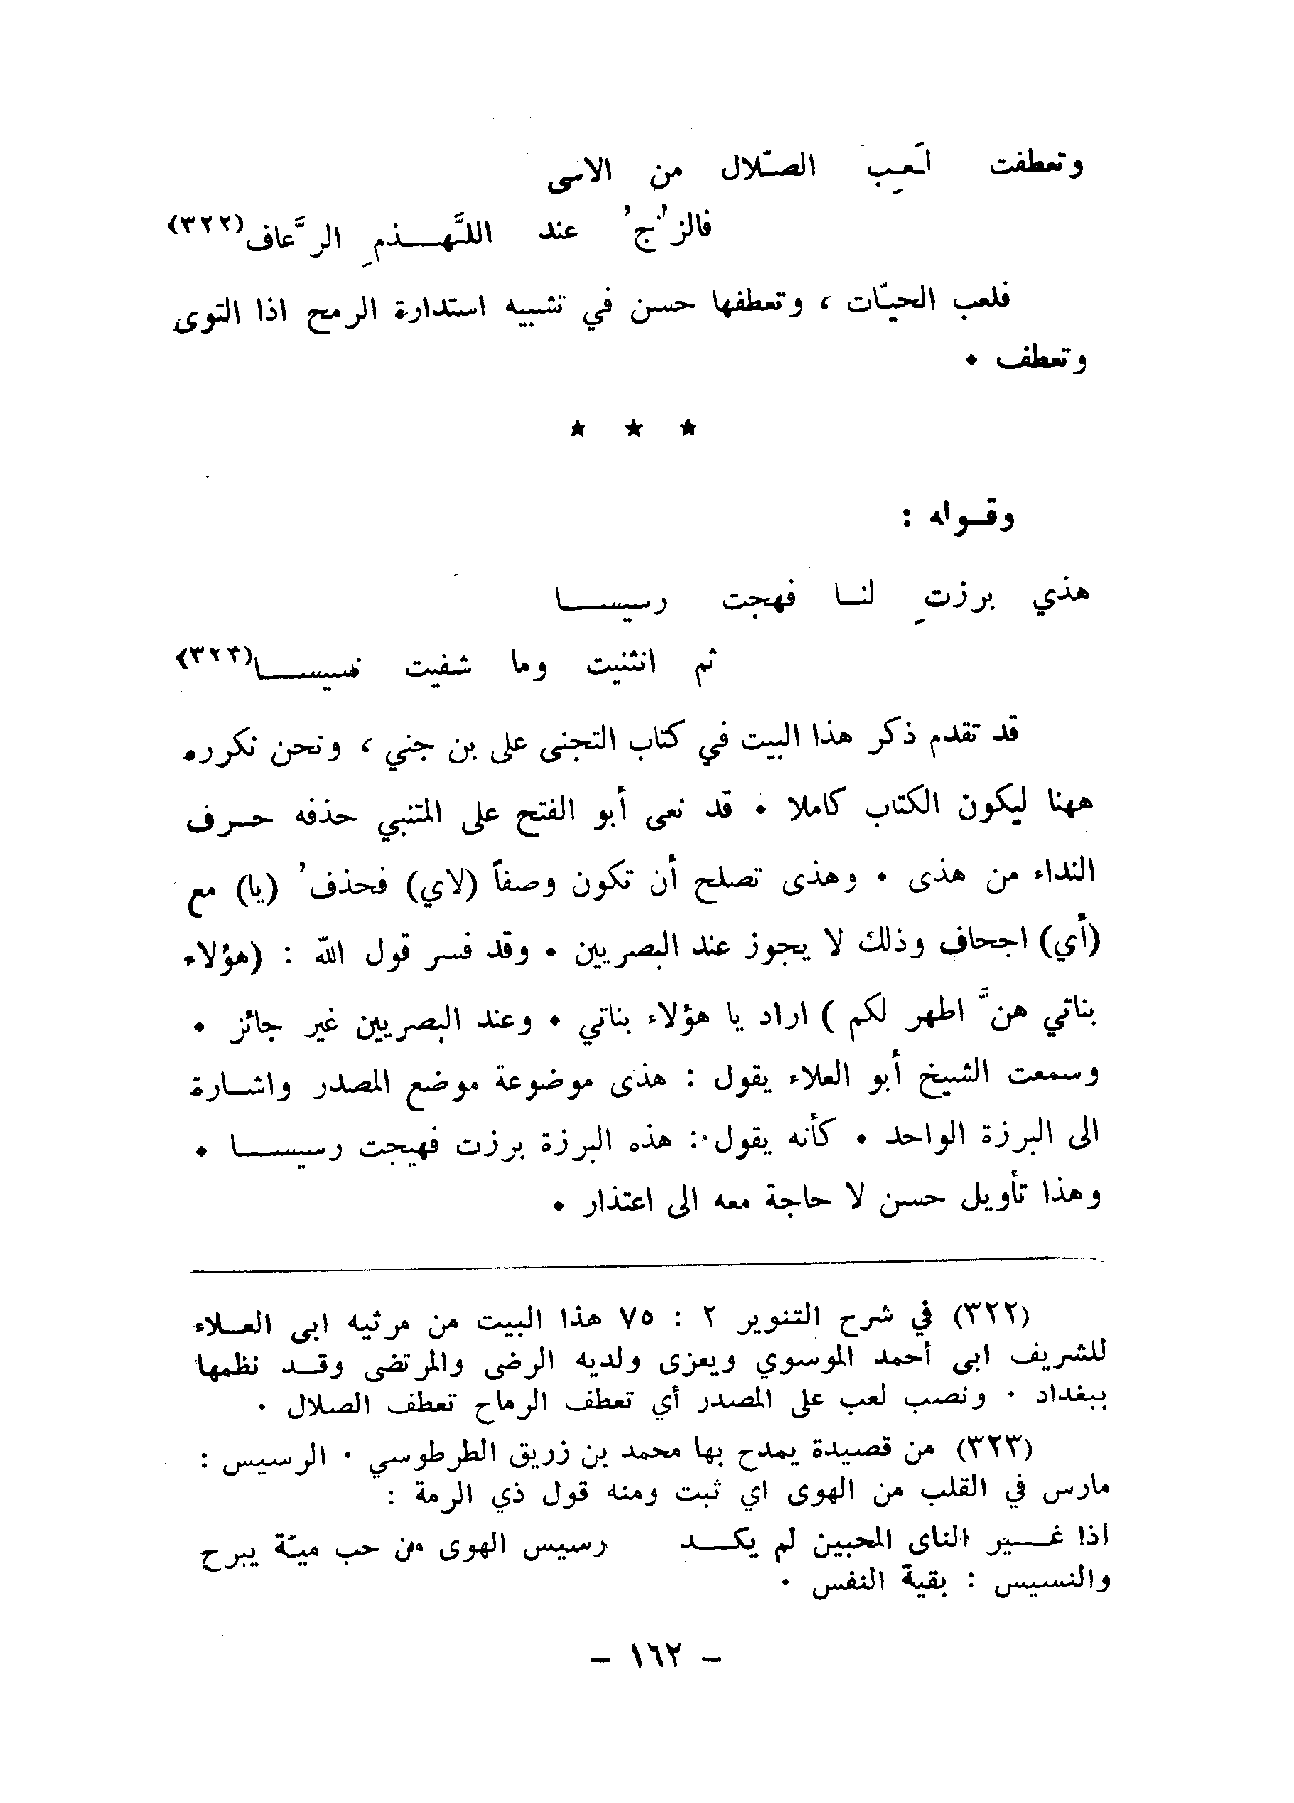 وتعطفت لَعِب الصّلال من الاسى
فالزُّج عند اللَّهـذمِ الرَّعاف(٣٢٢)
فلعب الحيّات ، وتعطفها حسن في تشبيه استدارة الرمح اذا التوى
وتعطف ٠
★ ★ ★
وقـوله :
هذي برزتِ لنـا فهجت رسيسـا
ثم انثنيت وما شفيت نسيسـا(٣٢٣)
قد تقدم ذكر هذا البيت في كتاب التجنى على بن جني ، ونحن نكرره
ههنا ليكون الكتاب كاملا ٠ قد نعى أبو الفتح على المتنبي حذفه حـرف
النداء من هذى ٠ وهذى تصلح أن تكون وصفاً (لاي) فحذفُ (يا) مع
(أي) اجحاف وذلك لا يجوز عند البصريين ٠ وقد فسر قول الله : (هؤلاء
بناتي هنَّ اطهر لكم ) اراد يا هؤلاء بناتي ٠ وعند البصريين غير جائز ٠
وسمعت الشيخ أبو العلاء يقول : هذى موضوعة موضع المصدر واشـارة
الى البرزة الواحد ٠ كأنه يقول : هذه البرزة برزت فهيجت رسيسـا ٠
وهذا تأويل حسن لا حاجة معه الى اعتذار ٠
(٣٢٢) في شرح التنوير ٢ : ٧٥ هذا البيت من مرثيه ابى العـلاء
للشريف ابى أحمد الموسوي ويعزى ولديه الرضى والمرتضى وقـد نظمها
ببغداد ٠ ونصب لعب على المصدر أي تعطف الرماح تعطف الصلال ٠
(٣٢٣) من قصيدة يمدح بها محمد بن زريق الطرطوسي ٠ الرسيس :
مارس في القلب من الهوى اي ثبت ومنه قول ذي الرمة :
اذا غـير الناى المحبين لم يكـد رسيس الهوى من حب ميّة يبرح
والنسيس : بقية النفس ٠
– ١٦٢ –